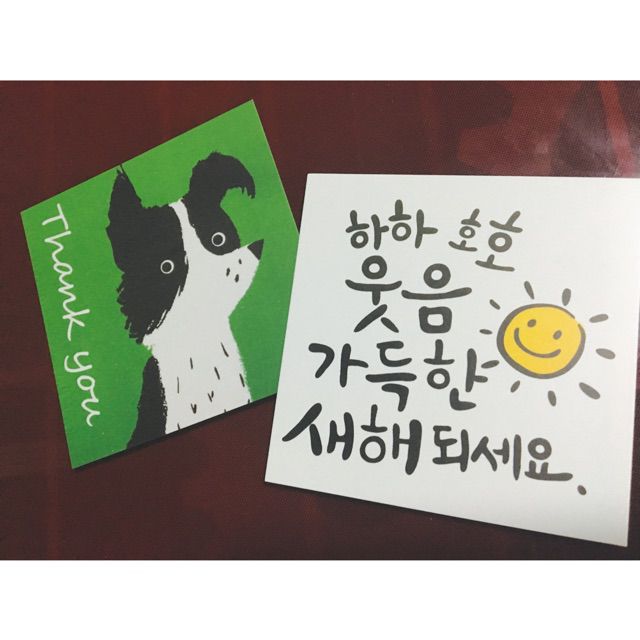 Thank you
하하 호호
웃음
가득한
새해 되세요.